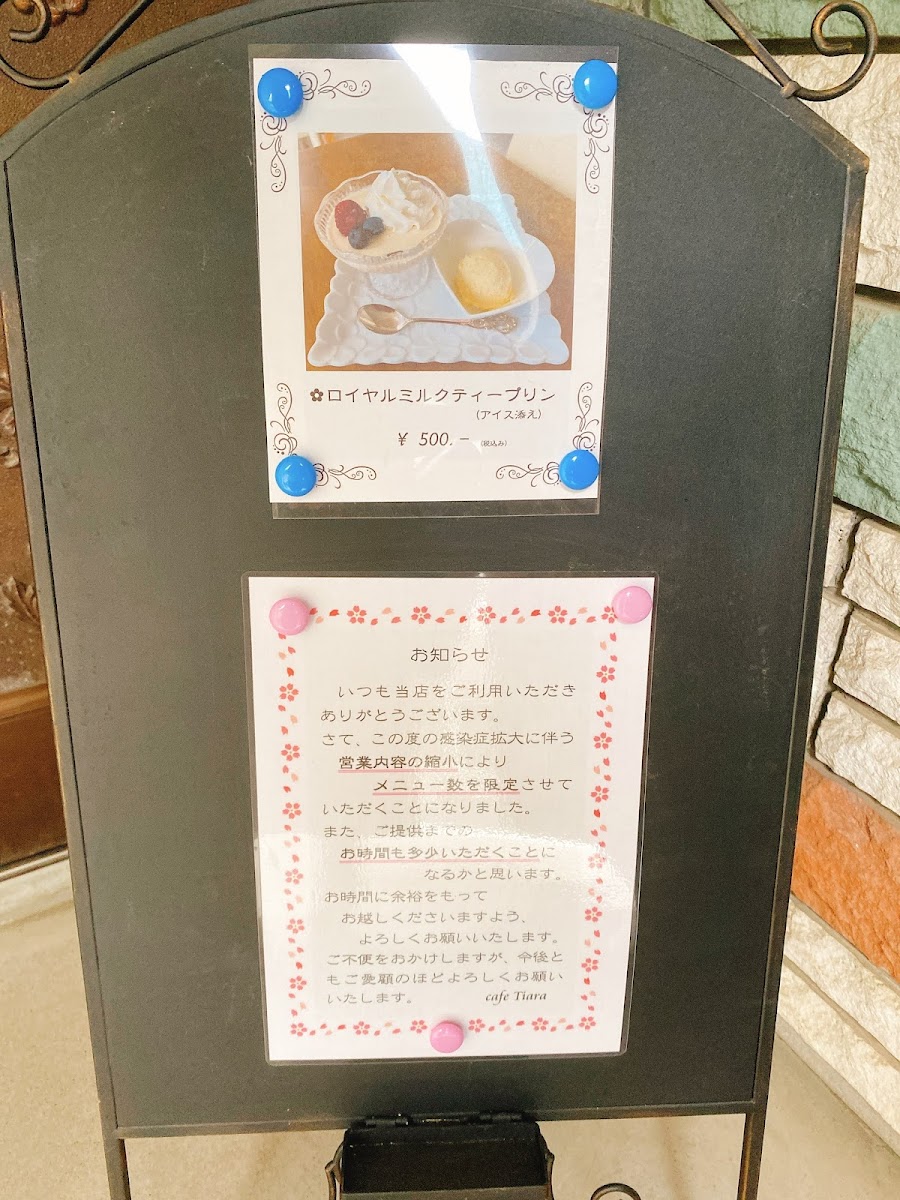 ✿ロイヤルミルクティープリン
(アイス添え)
¥ 500.− (税込み)
お知らせ
いつも当店をご利用いただき
ありがとうございます。
さて、この度の感染症拡大に伴う
営業内容の縮小により
メニュー数を限定させて
いただくことになりました。
また、ご提供までの
お時間も多少いただくことに
なるかと思います。
お時間に余裕をもって
お越しくださいますよう、
よろしくお願いいたします。
ご不便をおかけしますが、今後と
もご愛顧のほどよろしくお願い
いたします。 cafe Tiara